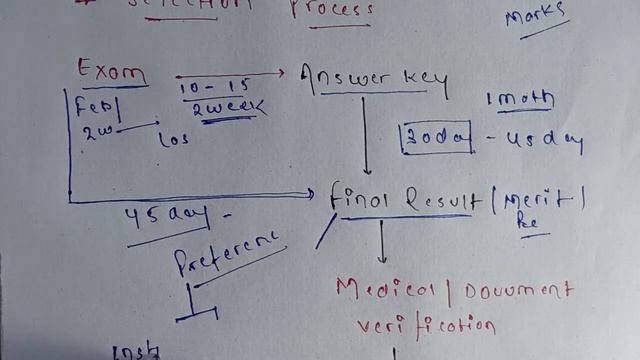 Selection Process
Marks
Exam
10 - 15
2 week
Answer key
Feb |
2w
Los
1 month
30 day - 45 day
Final Result (Merit)
45 day -
Preferenc
Medical | Document
verification
Inst